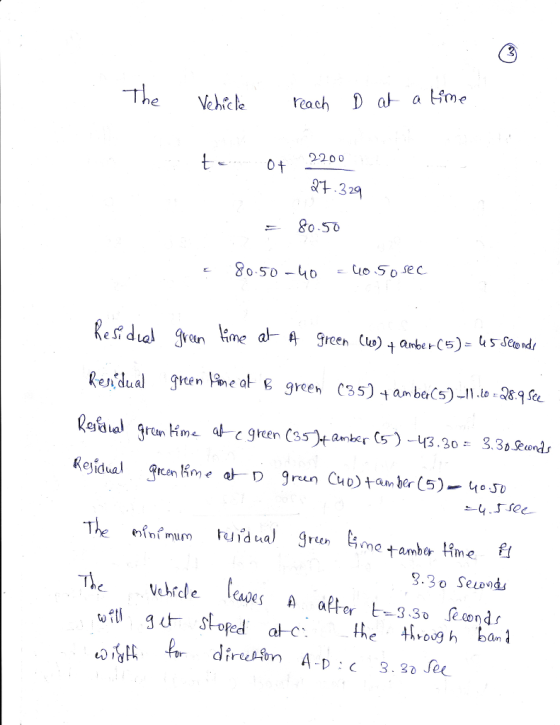 3
The Vehicle reach D at a time
t = 0+ 2200
27.329
= 80.50
= 80.50 - 40 = 40.50 sec
Residual green time at A green (40) + amber (5) = 45 Seconds
Residual green time at B green (35) + amber (5) - 11.10 = 28.9 Sec
Residual green time at C green (35) + amber (5) - 43.30 = 3.30 Seconds
Residual green time at D green (40) + amber (5) - 40.50
= 4.5 sec
The minimum residual green time + amber time is
3.30 Seconds
The Vehicle leaves A after t=3.30 Seconds
will get stoped at C: the through band
width for direction A-D: c 3.30 Sec